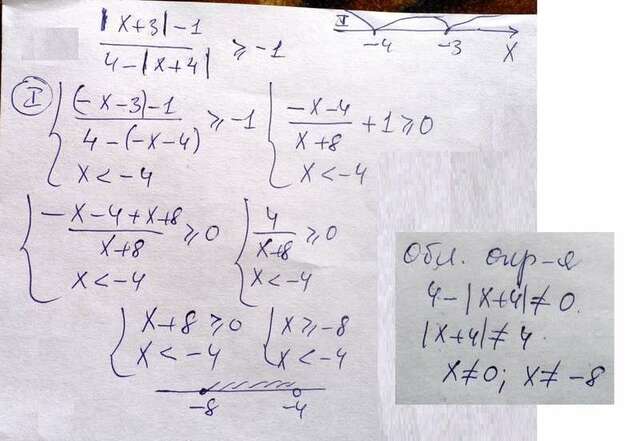 |x+3|-1 / 4-|x+4| ⩾ -1
I -4 -3 x
I { (-x-3)-1 / 4-(-x-4) ⩾ -1 { -x-4 / x+8 +1 ⩾ 0
x < -4 x < -4
{ -x-4+x+8 / x+8 ⩾ 0 { 4 / x+8 ⩾ 0
x < -4 x < -4
{ x+8 ⩾ 0 { x ⩾ -8
x < -4 x < -4
-8 -4
Обл. опр-я
4-|x+4| ≠ 0.
|x+4| ≠ 4.
x ≠ 0; x ≠ -8